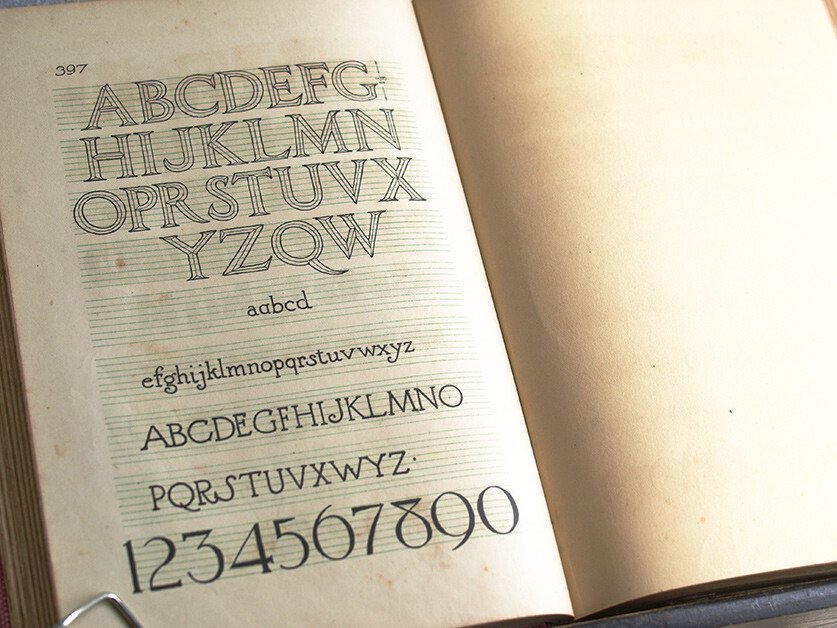 397
ABCDEFG
HIJKLMN
OPRSTUVX
YZQW
aabcd
efghijklmnopqrstuvwxyz
ABCDEGFHIJKLMNO
PQRSTUVXWYZ·
1234567890